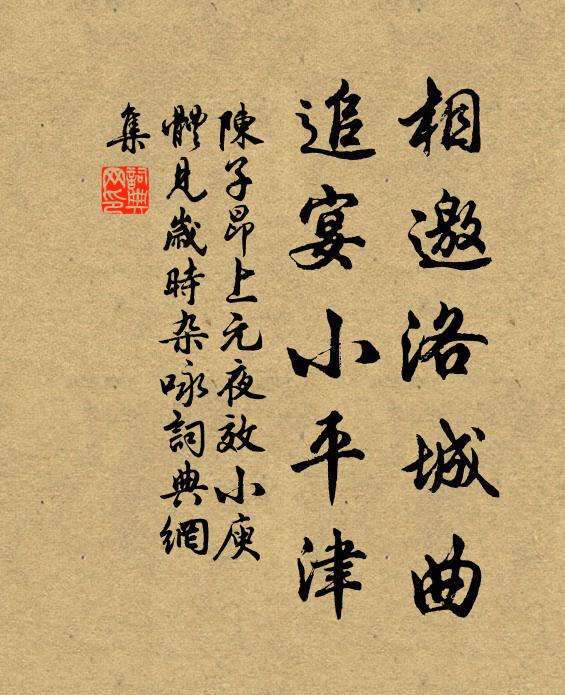 相邀洛城曲
追宴小平津
陳子昂上元夜效小庾
體見歲時杂咏詞典網
集
詞典
网印